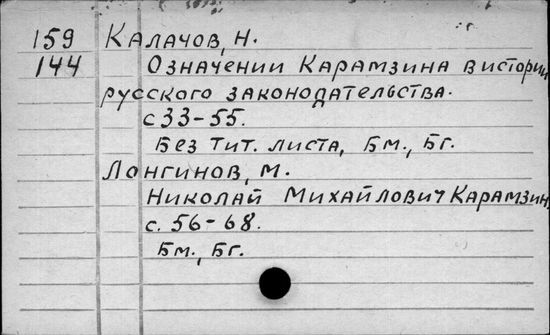 159 Калачов, Н.
144 Означении Карамзина в истории
русского законодательства.
с 33-55.
Без тит. листа, Бм., Бг.
Лонгинов, М.
Николай Михайлович Карамзин,
с. 56-68.
Бм., Бг.